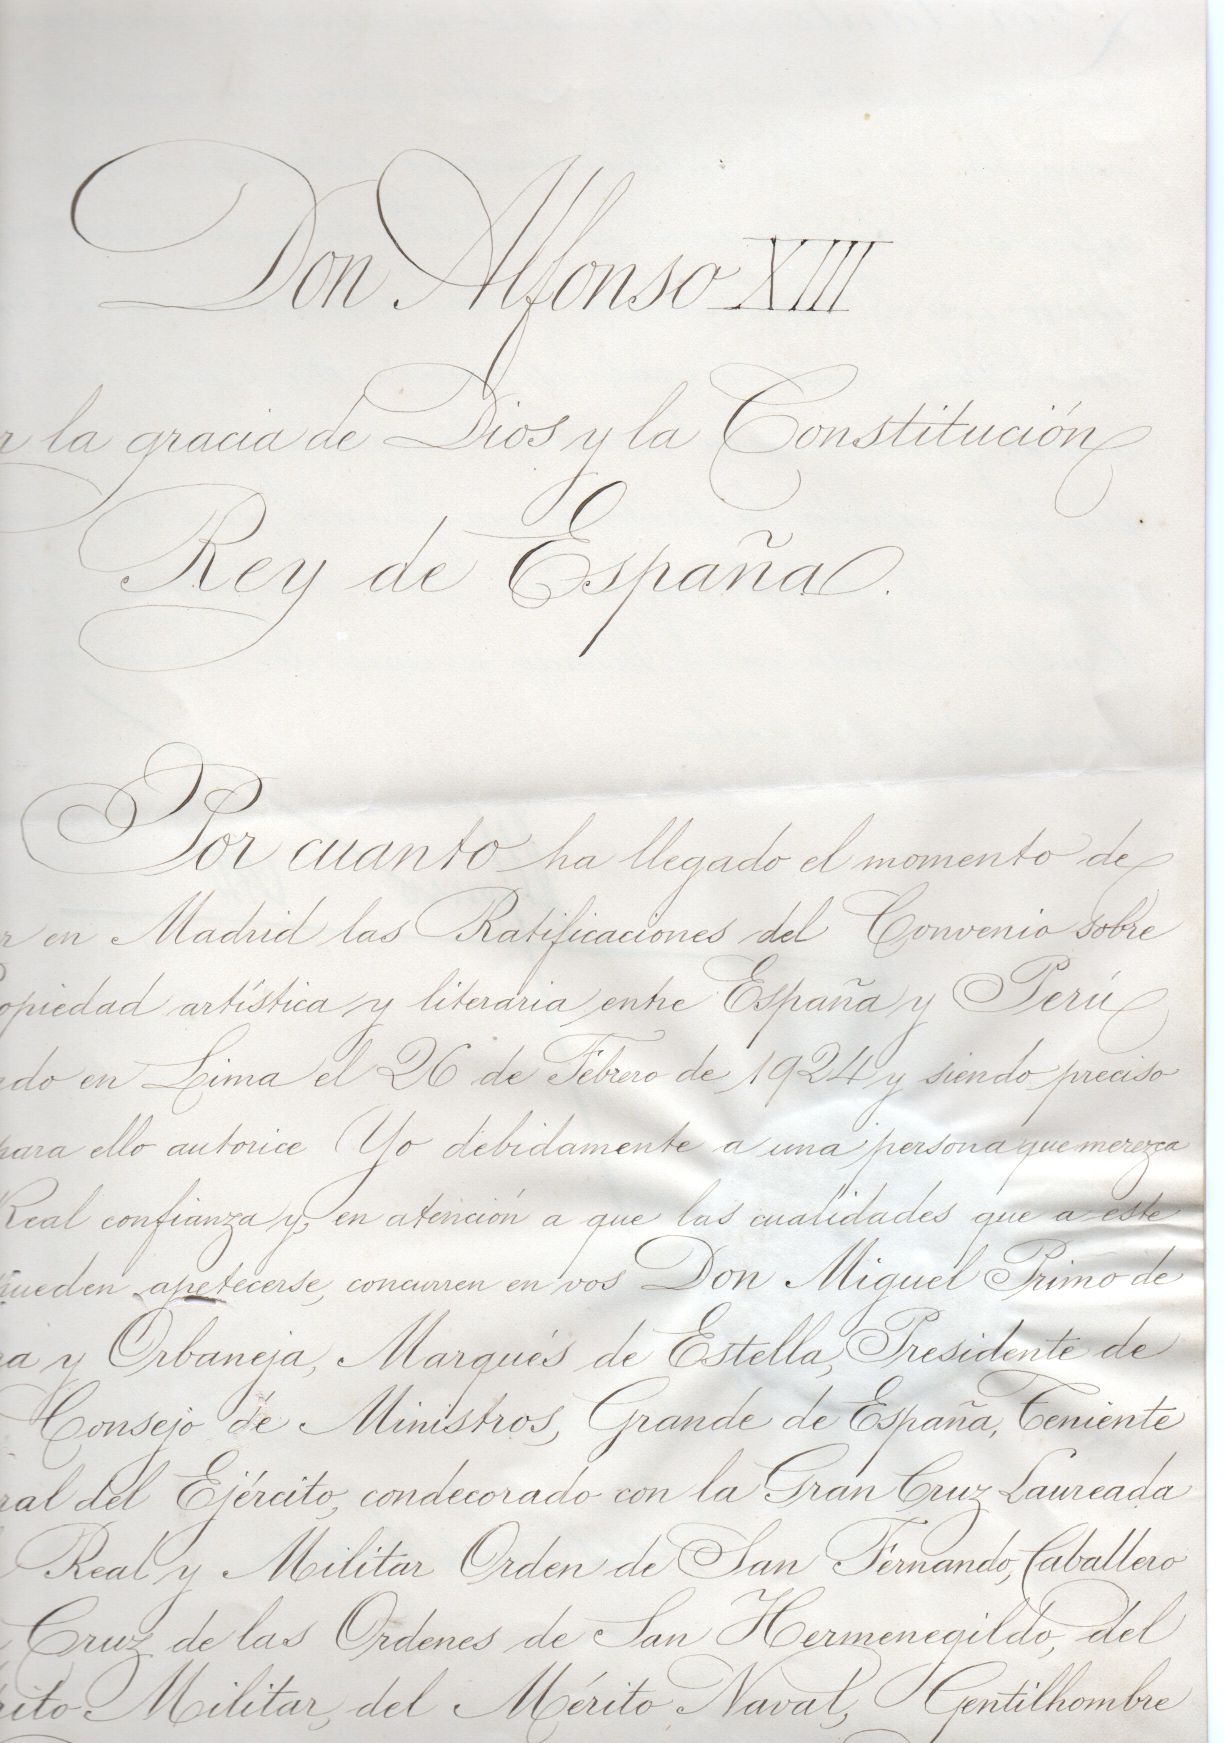 Don Alfonso XIII
r la gracia de Dios y la Constitución
Rey de España.
Por cuanto ha llegado el momento de
r en Madrid las Ratificaciones del Convenio sobre
opiedad artística y literaria entre España y Perú
do en Lima el 26 de Febrero de 1924 y siendo preciso
para ello autorice Yo debidamente a una persona que merezca
Real confianza y, en atención a que las cualidades que a este
pueden apetecerse, concurren en vos Don Miguel Primo de
ra y Orbaneja, Marqués de Estella, Presidente de
Consejo de Ministros, Grande de España, Teniente
ral del Ejército, condecorado con la Gran Cruz Laureada
Real y Militar Orden de San Fernando, Caballero
Cruz de las Ordenes de San Hermenegildo, del
rito Militar, del Mérito Naval, Gentilhombre